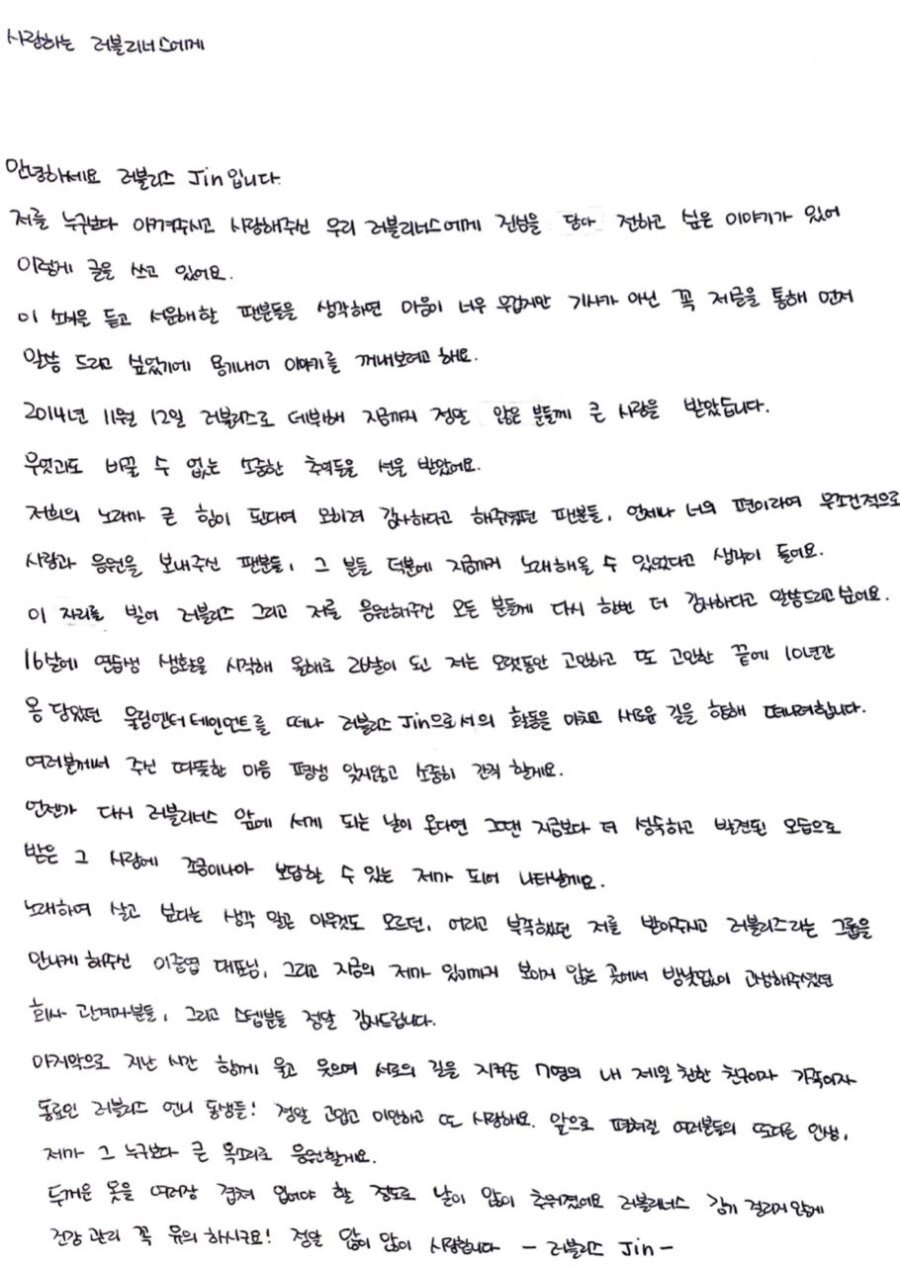 사랑하는 러블리너스에게
안녕하세요 러블리스 Jin입니다.
저를 누구보다 아껴주시고 사랑해주신 우리 러블리너스에게 진심을 담아 전하고 싶은 이야기가 있어
이렇게 글을 쓰고 있어요.
이 소식을 듣고 서운해할 팬분들을 생각하면 마음이 너무 무겁지만 기사가 아닌 꼭 저글을 통해 먼저
말씀 드리고 싶었기에 용기내어 이야기를 꺼내보려고 해요.
2014년 11월 12일 러블리스로 데뷔해 지금까지 정말 많은 분들께 큰 사랑을 받았습니다.
무엇과도 바꿀 수 없는 소중한 추억들을 선물 받았어요.
저희의 노래가 큰 힘이 된다며 오히려 감사하다고 해주셨던 팬분들, 언제나 너의 편이라며 무조건적으로
사랑과 응원을 보내주신 팬분들, 그 분들 덕분에 지금까지 노래해올 수 있었다고 생각이 들어요.
이 자리를 빌어 러블리스 그리고 저를 응원해주신 모든 분들께 다시 한번 더 감사하다고 말씀드리고싶어요.
16살에 연습생 생활을 시작해 올해로 26살이 된 저는 오랫동안 고민하고 또 고민한 끝에 10년간
몸 담았던 울림엔터테인먼트를 떠나 러블리스 Jin으로서의 활동을 마치고 새로운 길을 향해 떠나려합니다.
여러분께서 주신 따뜻한 마음 평생 잊지않고 소중히 간직 할게요.
언젠가 다시 러블리너스 앞에 서게 되는 날이 온다면 그땐 지금보다 더 성숙하고 발전된 모습으로
받은 그 사랑에 조금이나마 보답할 수 있는 제가 되어 나타날게요.
노래하며 살고 싶다는 생각 말곤 아무것도 모르던, 어리고 부족했던 저를 받아주시고 러블리즈라는 그룹을
만나게 해주신 이중엽 대표님, 그리고 지금의 제가 있기까지 보이지 않는 곳에서 밤낮없이 고생해주셨던
회사 관계자분들, 그리고 스텝분들 정말 감사드립니다.
마지막으로 지난 시간 함께 울고 웃으며 서로의 길을 지켜준 7명의 내 제일 친한 친구이자 가족이자
동료인 러블리스 언니 동생들! 정말 고맙고 미안하고 또 사랑해요. 앞으로 펼쳐질 여러분들의 또다른 인생,
제가 그 누구보다 큰 목소리로 응원할게요.
두꺼운 옷을 여러장 겹쳐 입어야 할 정도로 날이 많이 추워졌어요 러블리너스 감기 걸리지 않게
건강 관리 꼭 유의 하시구요! 정말 많이 많이 사랑합니다 - 러블리스 Jin -